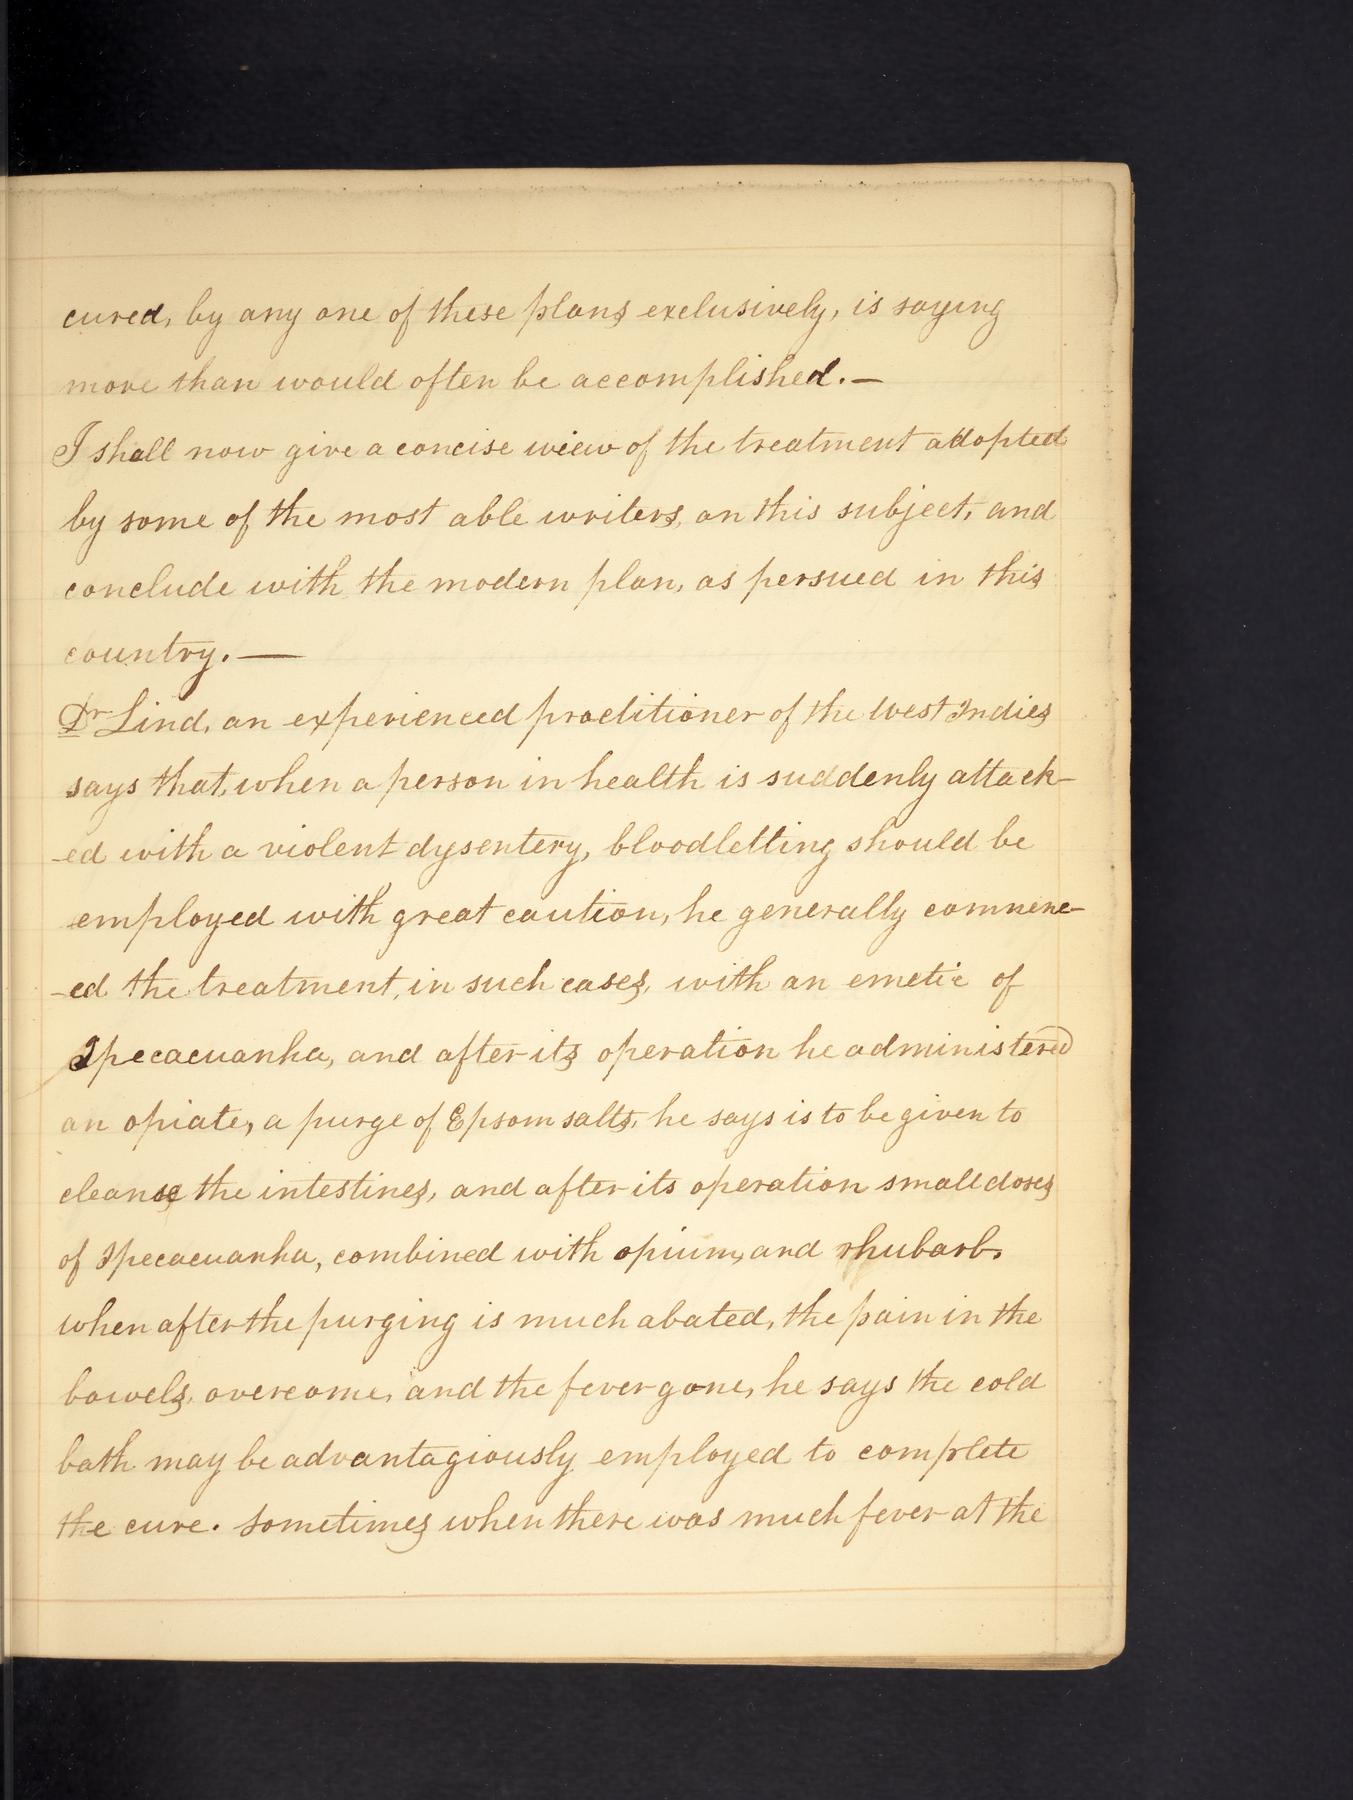 cured, by any one of these plans exclusively, is saying
more than would often be accomplished. —
I shall now give a concise wiew of the treatment adopted
by some of the most able writers, on this subject, and
conclude with the modern plan, as persued in this
country. —
Dr Lind, an experienced practitioner of the West Indies
says that, when a person in health is suddenly attack-
-ed with a violent dysentery, bloodletting should be
employed with great caution, he generally commenc-
-ed the treatment, in such cases, with an emetic of
Ipecacuanha, and after its operation he administered
an opiate, a purge of Epsom salts, he says is to be given to
cleanse the intestines, and after its operation small doses
of Ipecacuanha, combined with opium, and rhubarb,
when after the purging is much abated, the pain in the
bowels, overcome, and the fever gone, he says the cold
bath may be advantagiously employed to complete
the cure. Sometimes when there was much fever at the